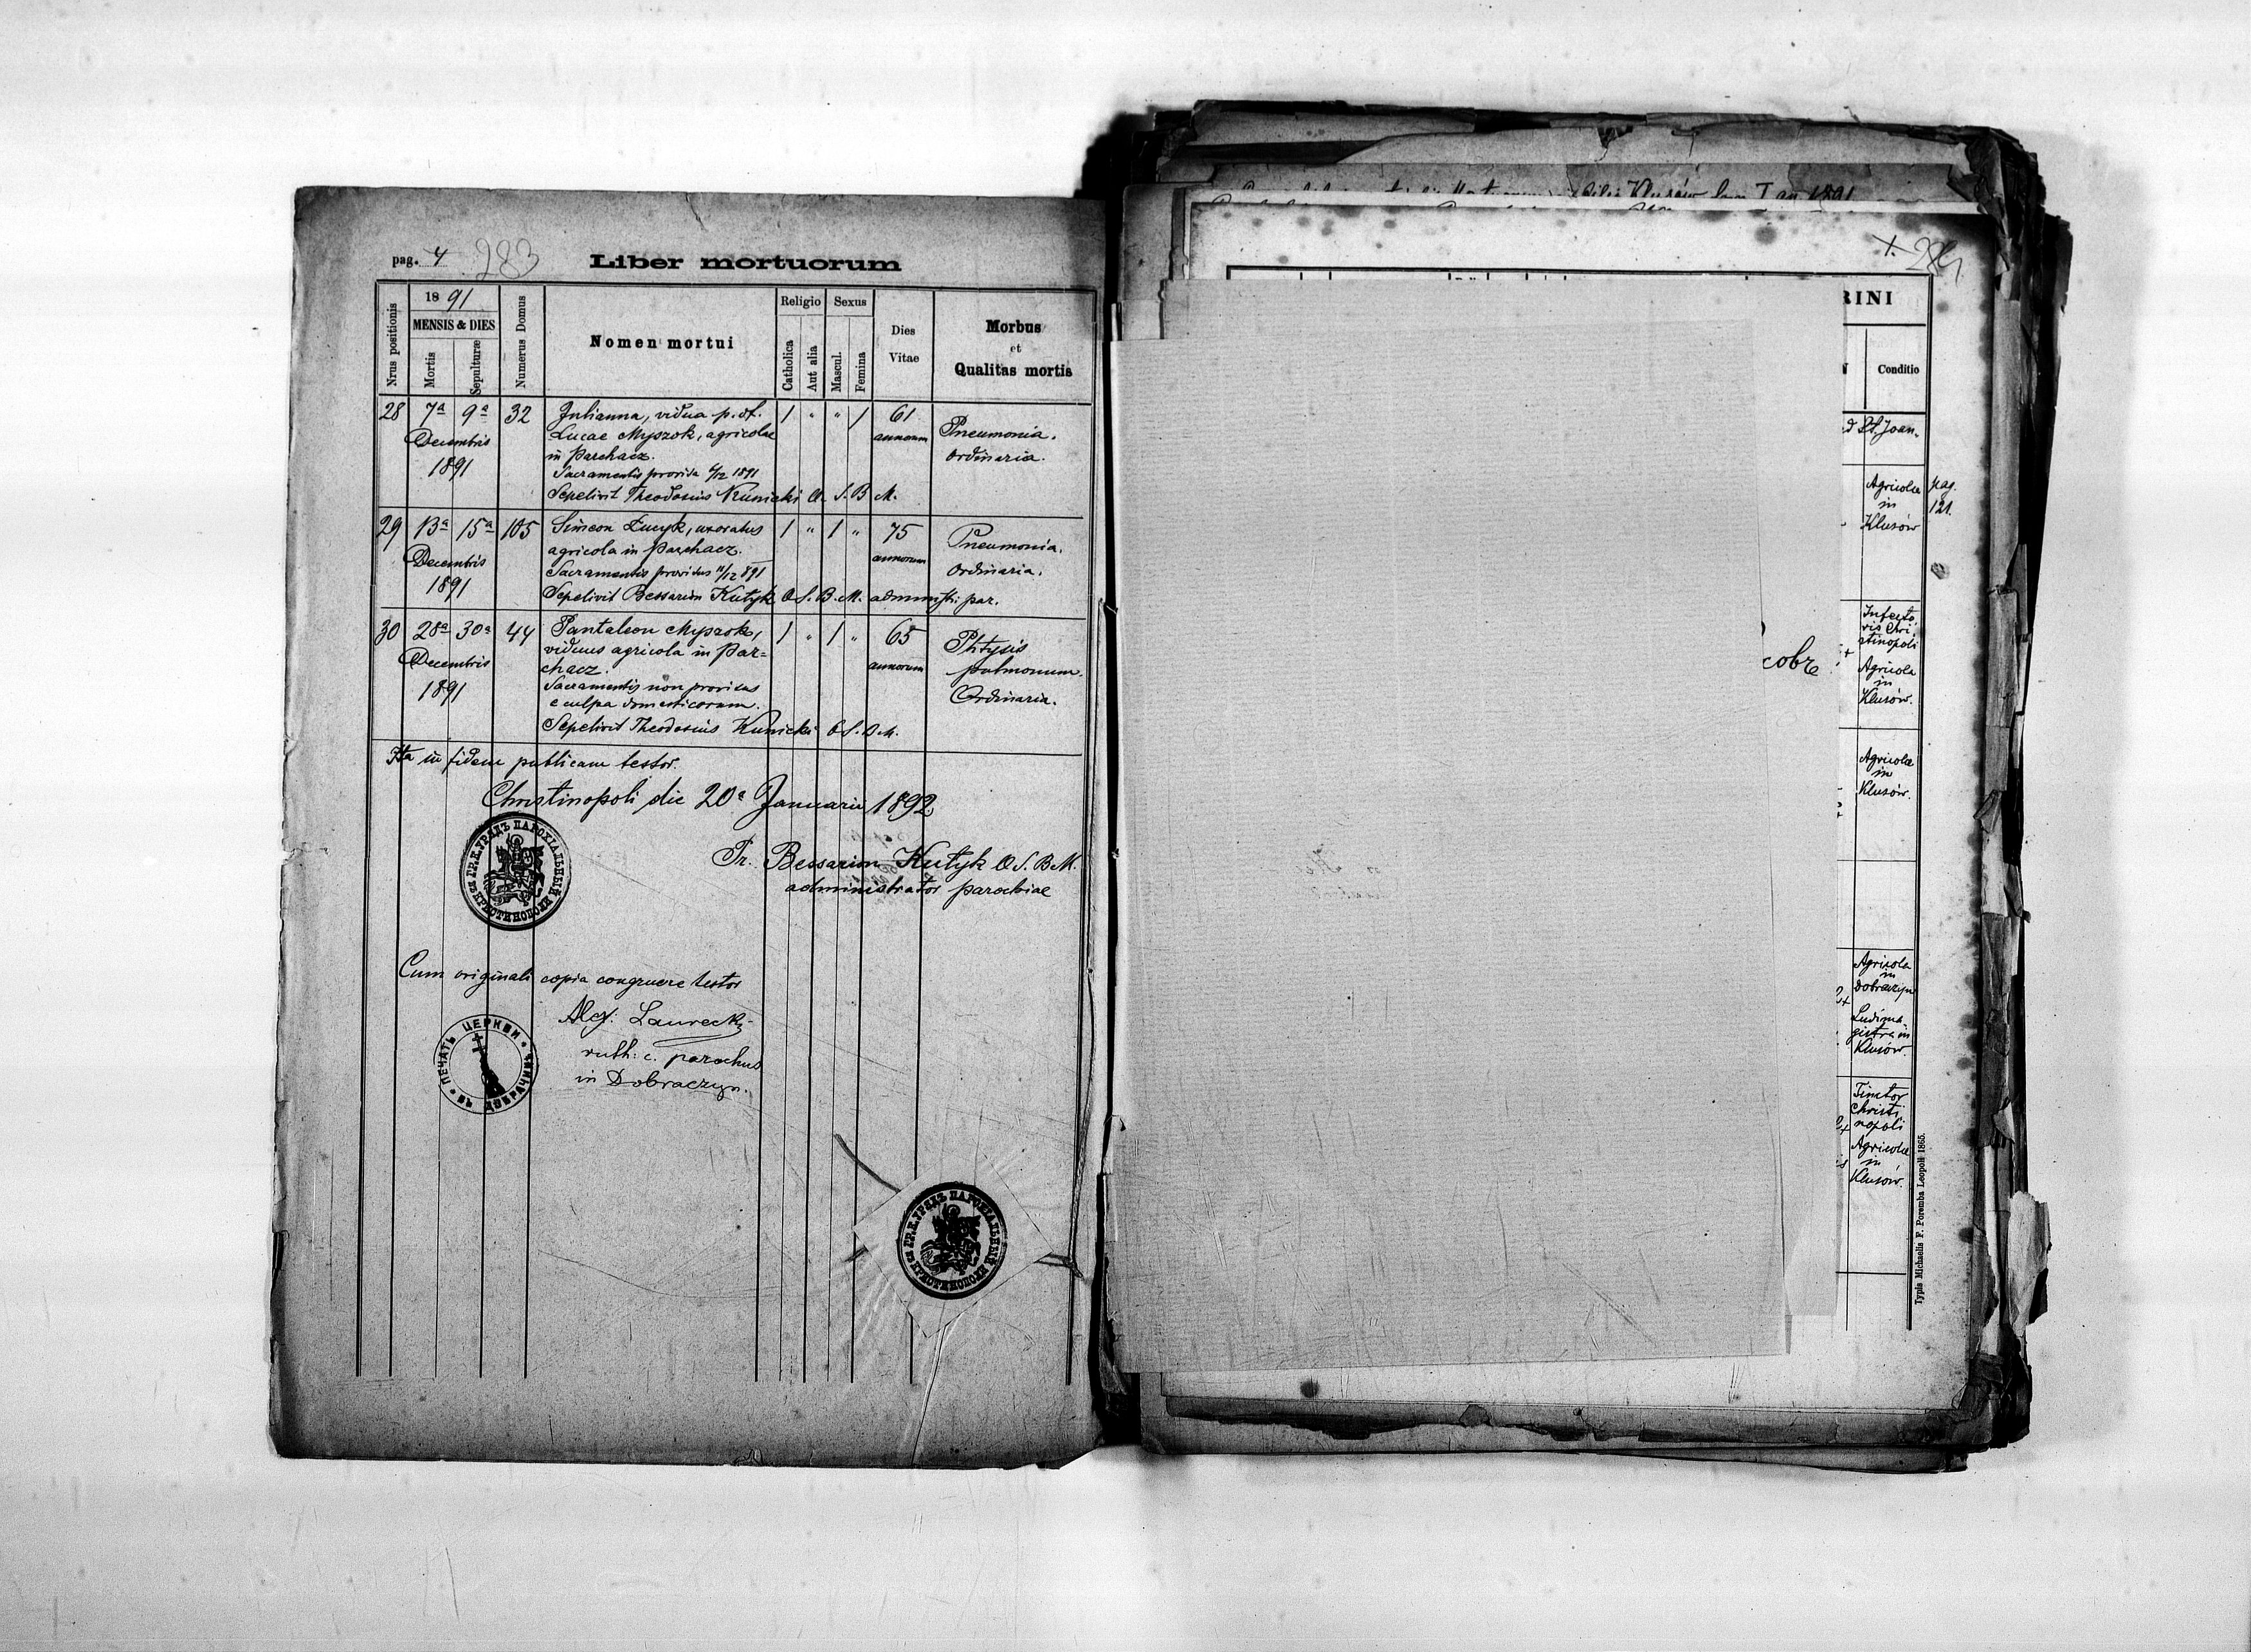 pag. 4 283 Liber mortuorum
Nrus positionis
1891
MENSIS & DIES
Mortis
Sepulturæ
Numerus Domus
Nomen mortui
Religio
Catholica
Aut alia
Sexus
Mascul.
Femina
Dies
Vitae
Morbus
et
Qualitas mortis
28 7ª 9ª 32 Julianna, vidua p. df. 1 " " 1 61
Decembris Lucae Myszok, agricolae annorum Pneumonia.
1891 in Parchacz. ordinaria.
Sacramentis provisa 6/12 1891
Sepelivit Theodosius Kunicki O. S. B M.
29 13ª 15ª 105 Simeon Łucyk, uxoratus 1 " 1 " 75 Pneumonia.
Decembris agricola in Parchacz. annorum ordinaria.
1891 Sacramentis provisus 11/12 891
Sepelivit Bessarion Kutyk O S. B. M. administr. par.
30 28ª 30ª 44 Pantaleon Myszok, 1 " 1 " 65 Phtysis
Decembris viduus agricola in Par= annorum pulmonum.
1891 chacz. Ordinaria.
Sacramentis non provisus
e culpa domesticorum.
Sepelivit Theodosius Kunicki O S. B M.
Ita in fidem publicam testor.
Christinopoli die 20ª Januarii 1892
Pr. Bessarion Kutyk O S. B M.
administrator parochiae
ГР. К. УРЯДЪ ПАРОХІАЛЬНЫЙ
КРИСТИНОПОЛИ
Cum originali copia congruere testor
Alex: Laurecki
ruth: c. parochus
in Dobraczyn.
ПЕЧАТЬ ЦЕРКВИ
ВЪ ДОБРАЧИНѢ
ГР. К. УРЯДЪ ПАРОХІАЛЬНЫЙ
КРИСТИНОПОЛИ
Klusów 1891
284
RINI
Conditio
St. Joan.
Agricolae
in
Klusów
pag.
121.
Infecto
ris Chri
stinopoli
cobr
Agricola
in
Klusów.
Agricolae
in
Klusów.
Agricola
in
Dobraczyn
Ludima
gistra in
Klusów.
Tinctor
Christi
nopoli
Agricolae
in
Klusów.
Typis Michaelis F. Poremba Leopoli 1865.